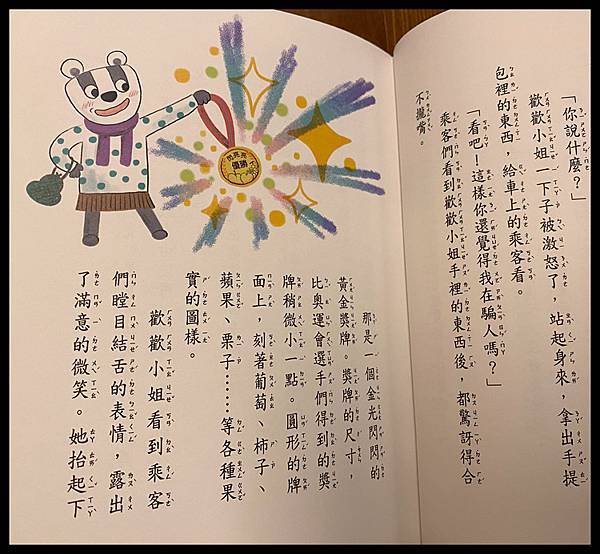 「你說什麼？」
歡歡小姐一下子被激怒了，站起身來，拿出手提
包裡的東西，給車上的乘客看。
「看吧！這樣你還覺得我在騙人嗎？」
乘客們看到歡歡小姐手裡的東西後，都驚訝得合
不攏嘴。
那是一個金光閃閃的
黃金獎牌。獎牌的尺寸，
比奧運會選手們得到的獎
牌稍微小一點。圓形的牌
面上，刻著葡萄、柿子、
蘋果、栗子……等各種果
實的圖樣。
歡歡小姐看到乘客
們瞠目結舌的表情，露出
了滿意的微笑。她抬起下
優勝